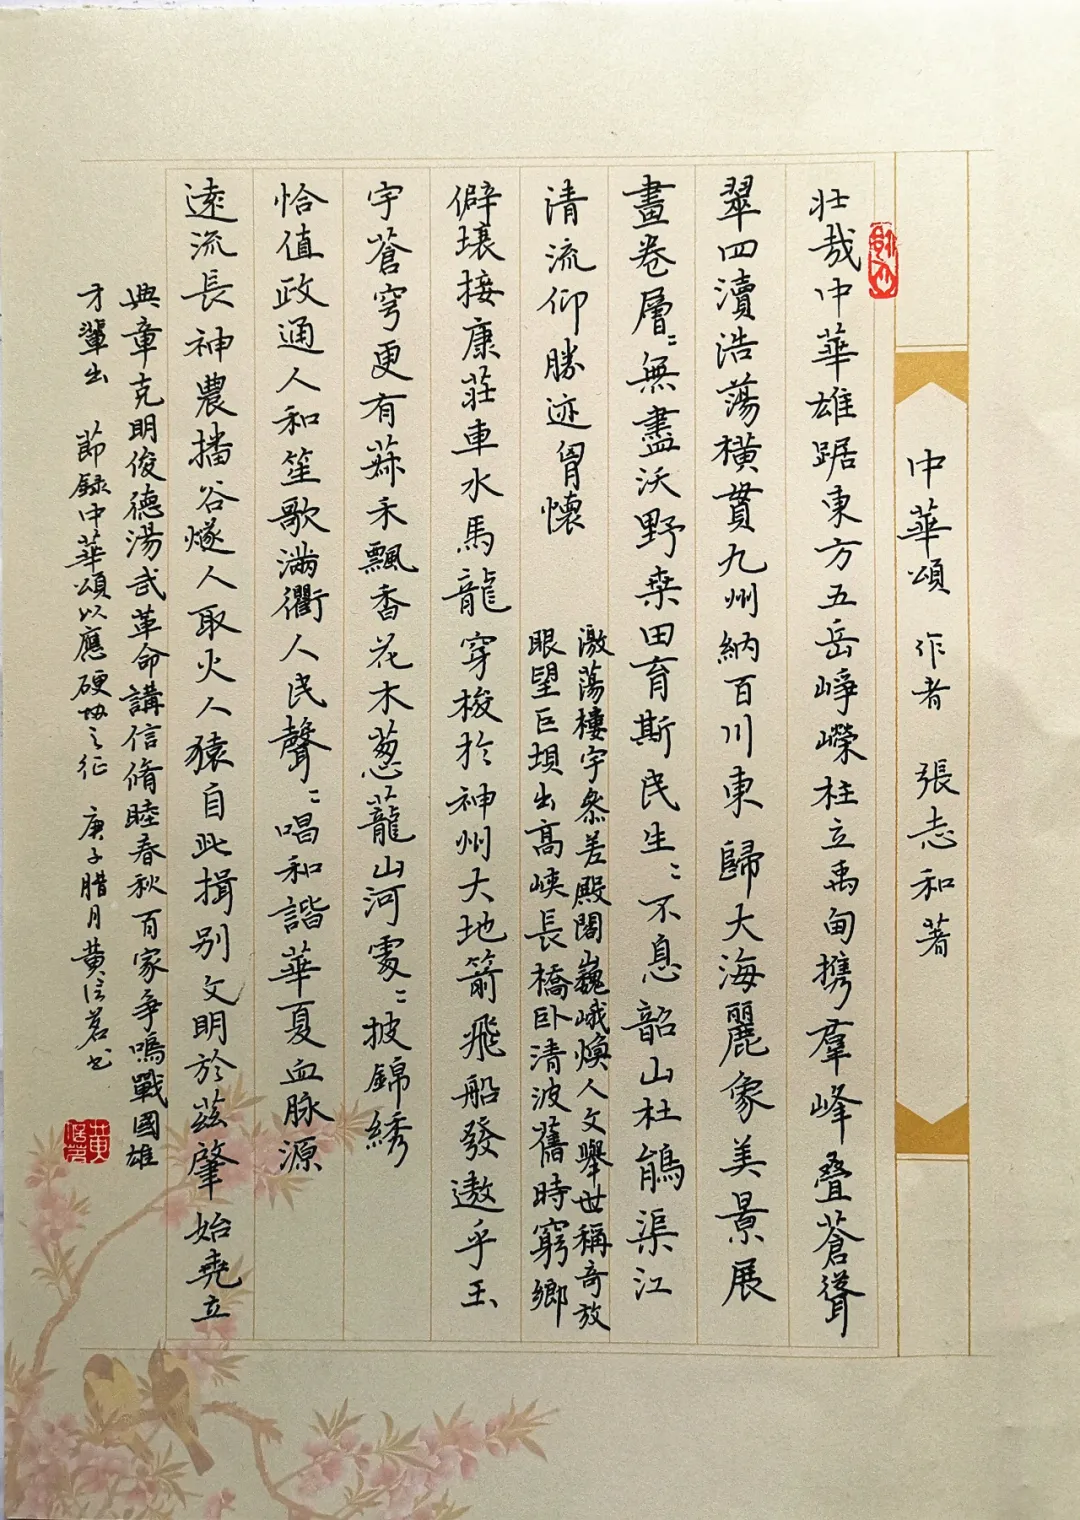 中華頌 作者 張志和著
壯哉中華雄踞東方五岳崢嶸柱立禹甸携羣峰叠蒼聳
翠四瀆浩蕩橫貫九州納百川東歸大海麗象美景展
畫卷層〻無盡沃野桒田育斯民生〻不息韶山杜鵑渠江
清流仰勝迹胷懷
激蕩樓宇叅差殿閣巍峨煥人文舉世稱奇放
眼望巨垻出高峽長橋卧清波舊時窮鄉
僻壤接康莊車水馬龍穿梭於神州大地箭飛船發遨乎玉
宇蒼穹更有蔴禾飄香花木葱蘢山河處〻披錦綉
恰值政通人和笙歌滿衢人民聲〻唱和諧華夏血脉源
遠流長神農播谷燧人取火人猿自此揖别文明於茲肇始堯立
典章克明俊德湯武革命講信脩睦春秋百家爭鳴戰國雄
才輩出 節録中華頌以應硬协之征 庚子腊月黄信茗书